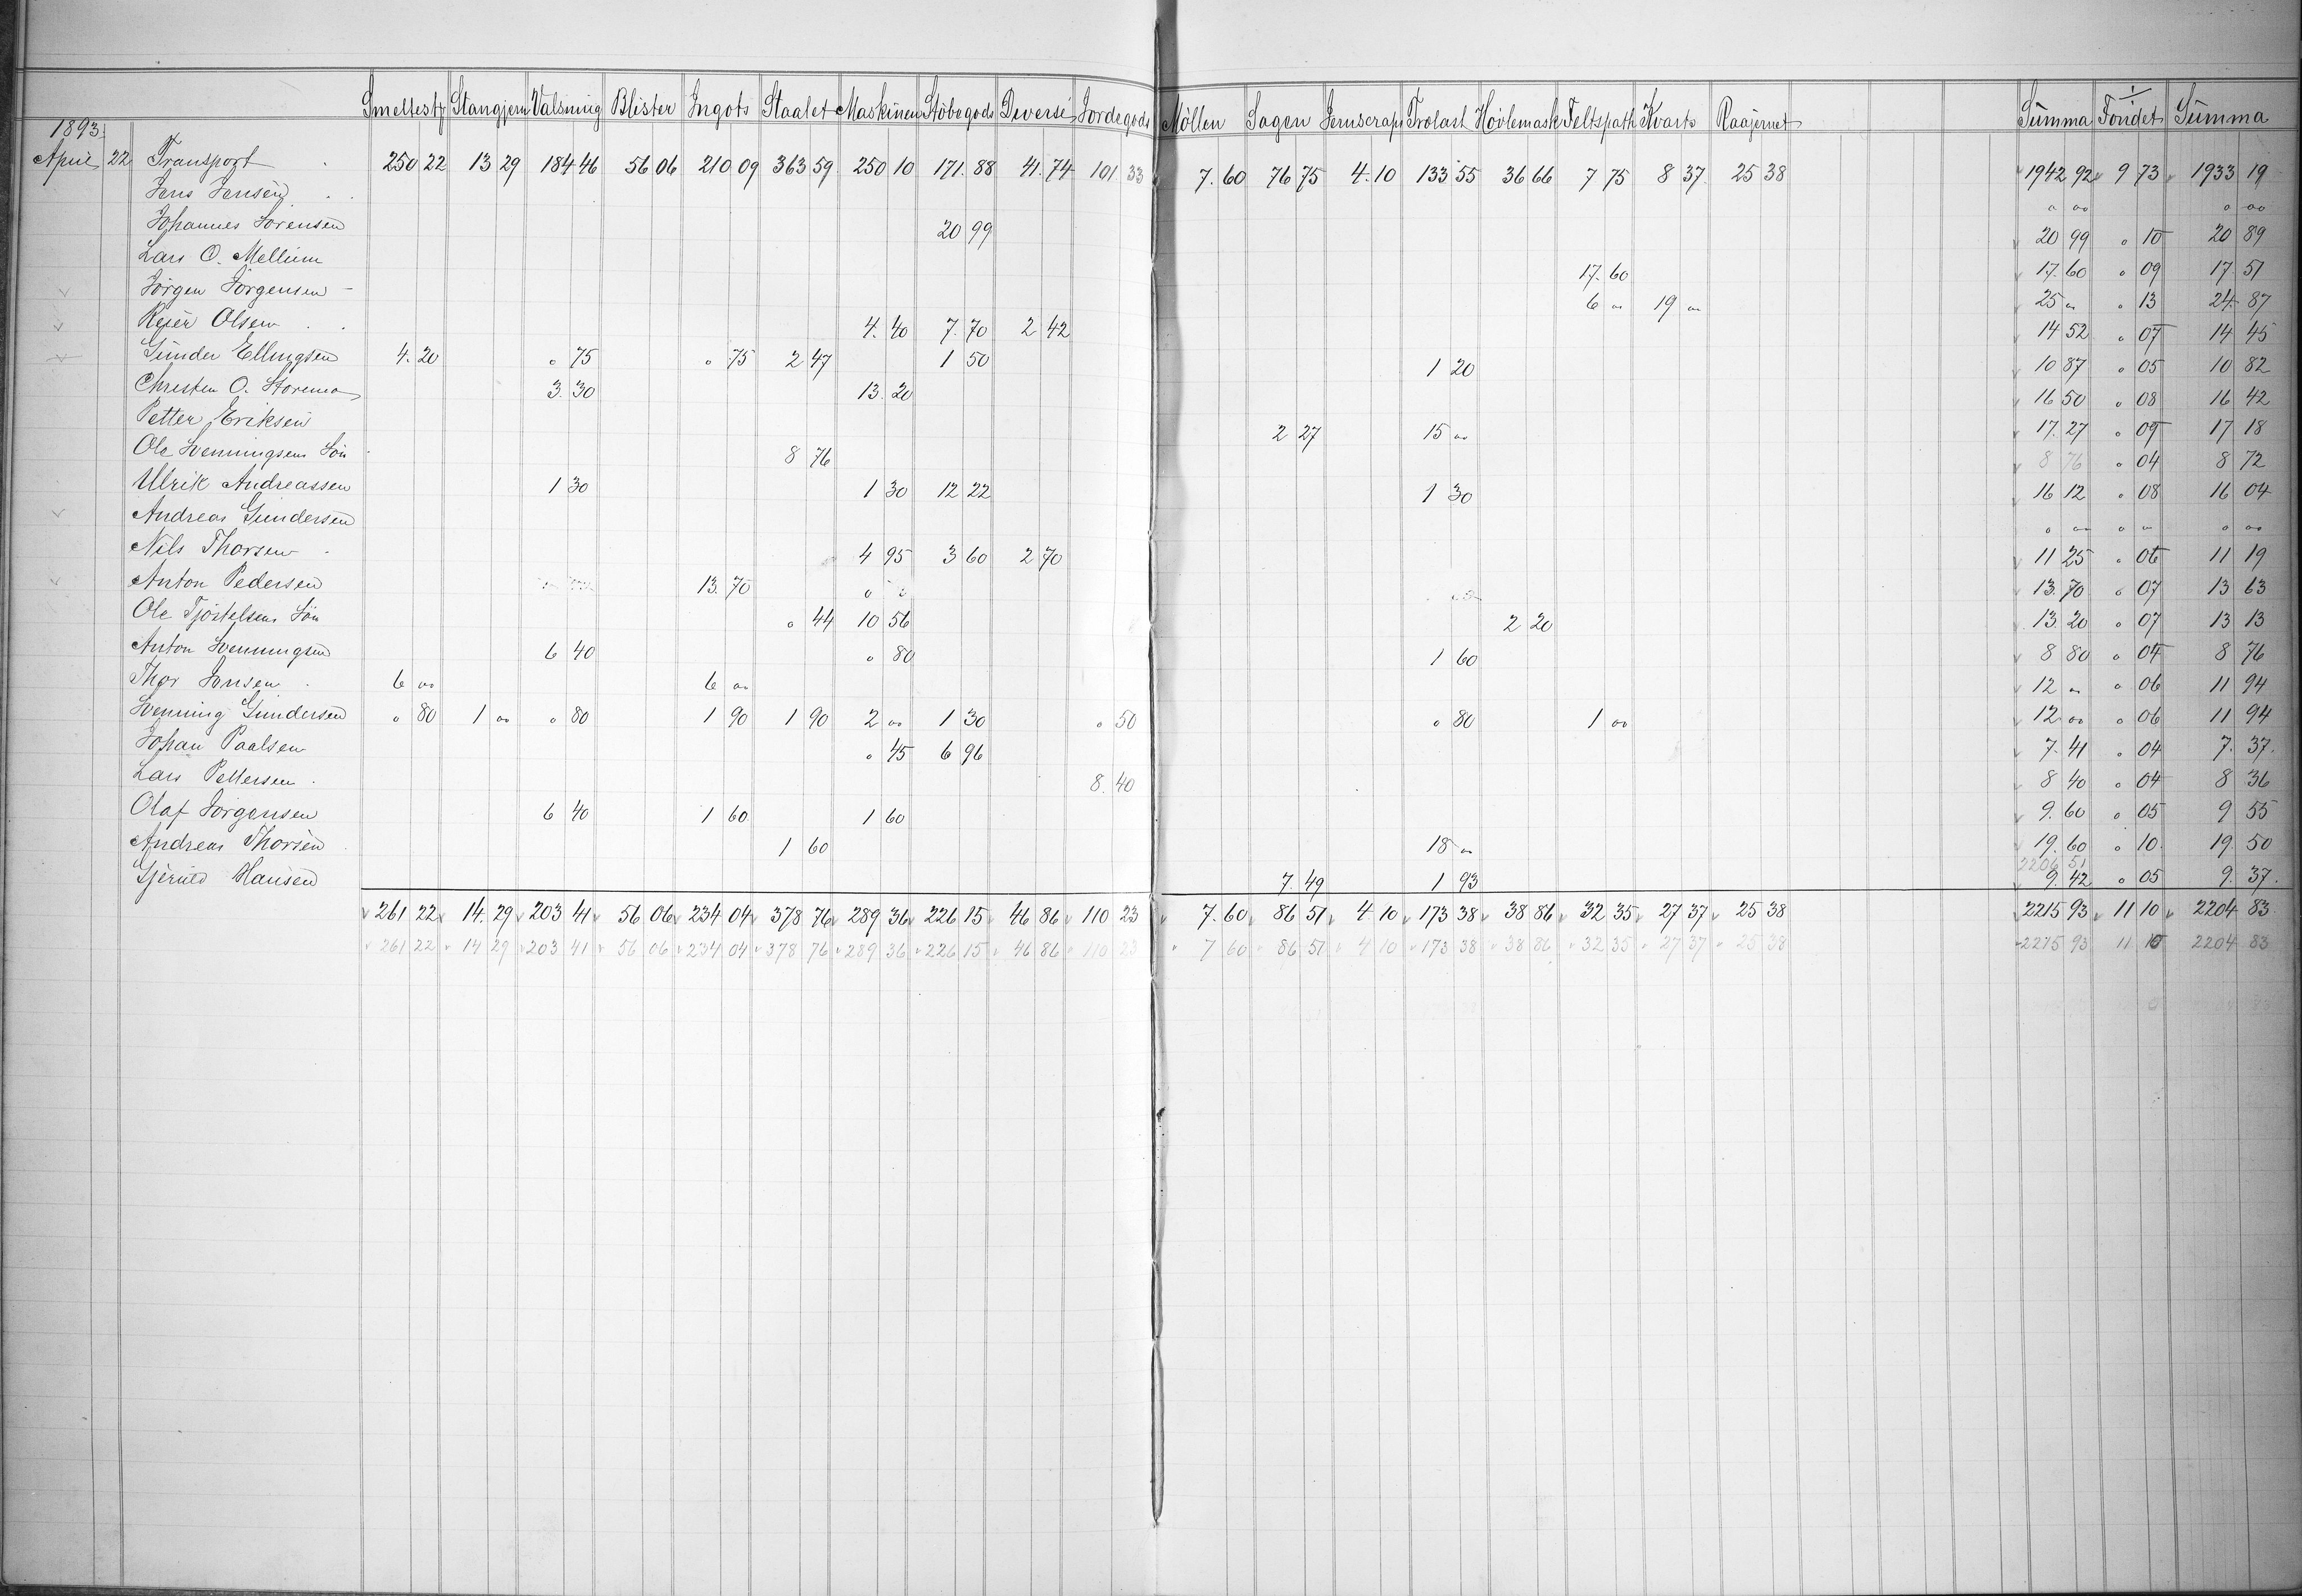 Smeltestf Stangjern Valsning Blister Ingots Staalet Maskinen Stöbegods Deverse Jordegods Möllen Sagen Jernscraps Trælast Hövlemask Feltspath Kvarts Raajernet Summa Fondet Summa
1893
April 22 Transport 250 22 13 29 184 46 56 06 210 09 363 59 250 10 171.88 41.74 101 33 7.60 76 75 4.10 133 55 36 66 7 75 8 37 25 38 1942 92 9 73 1933 19
Jens Jensen " " " "
Johannes Sörensen 20 99 20 99 " 10 20 89
Lars O. Mellum 17.60 17.60 " 09 17 51
Jörgen Jörgensen 6 " 19 " 25 " " 13 24 87
Reier Olsen 4.40 7.70 2 42 14 52 " 07 14 45
Gunder Ellingsen 4.20 " 75 " 75 2 47 1 50 1 20 10 87 " 05 10 82
Christen O. Storemo 3.30 13.20 16 50 " 08 16 42
Petter Eriksen 2 27 15 " 17.27 " 09 17 18
Ole Svenningsens Sön 8 76 8 76 " 04 8 72
Ulrik Andreassen 1 30 1 30 12 22 1 30 16 12 " 08 16 04
Andreas Gundersen " " " " " "
Nils Thorsen 4 95 3 60 2 70 11 25 " 06 11 19
Anton Pedersen 13.70 13.70 " 07 13 63
Ole Tjöstelsens Sön " 44 10 56 2 20 13 20 " 07 13 13
Anton Svenningsen 6 40 " 80 1 60 8 80 " 04 8 76
Thor Jensen 6 " 6 " 12 " " 06 11 94
Svenning Gundersen " 80 1 " " 80 1 90 1 90 2 " 1 30 " 50 " 80 1 " 12 " " 06 11 94
Johan Paalsen " 45 6 96 7.41 " 04 7.37
Lars Pettersen 8.40 8 40 " 04 8 36
Olaf Jörgensen 6 40 1 60 1 60 9.60 " 05 9 55
Andreas Thorsen 1 60 18 " 19.60 " 10 19 50
2206 51
Gjeruld Hansen 7.49 1 93 9.42 " 05 9.37
261 22 14.29 203 41 56 06 234 04 378 76 289 36 226 15 46 86 110 23 7.60 86 51 4 10 173 38 38 86 32 35 27 37 25 38 2215 93 11 10 2204 83
261 22 14 29 203 41 56 06 234 04 378 76 289 36 226 15 46 86 110 23 7 60 86 51 4 10 173 38 38 86 32 35 27 37 25 38 2215 93 11 10 2204 83